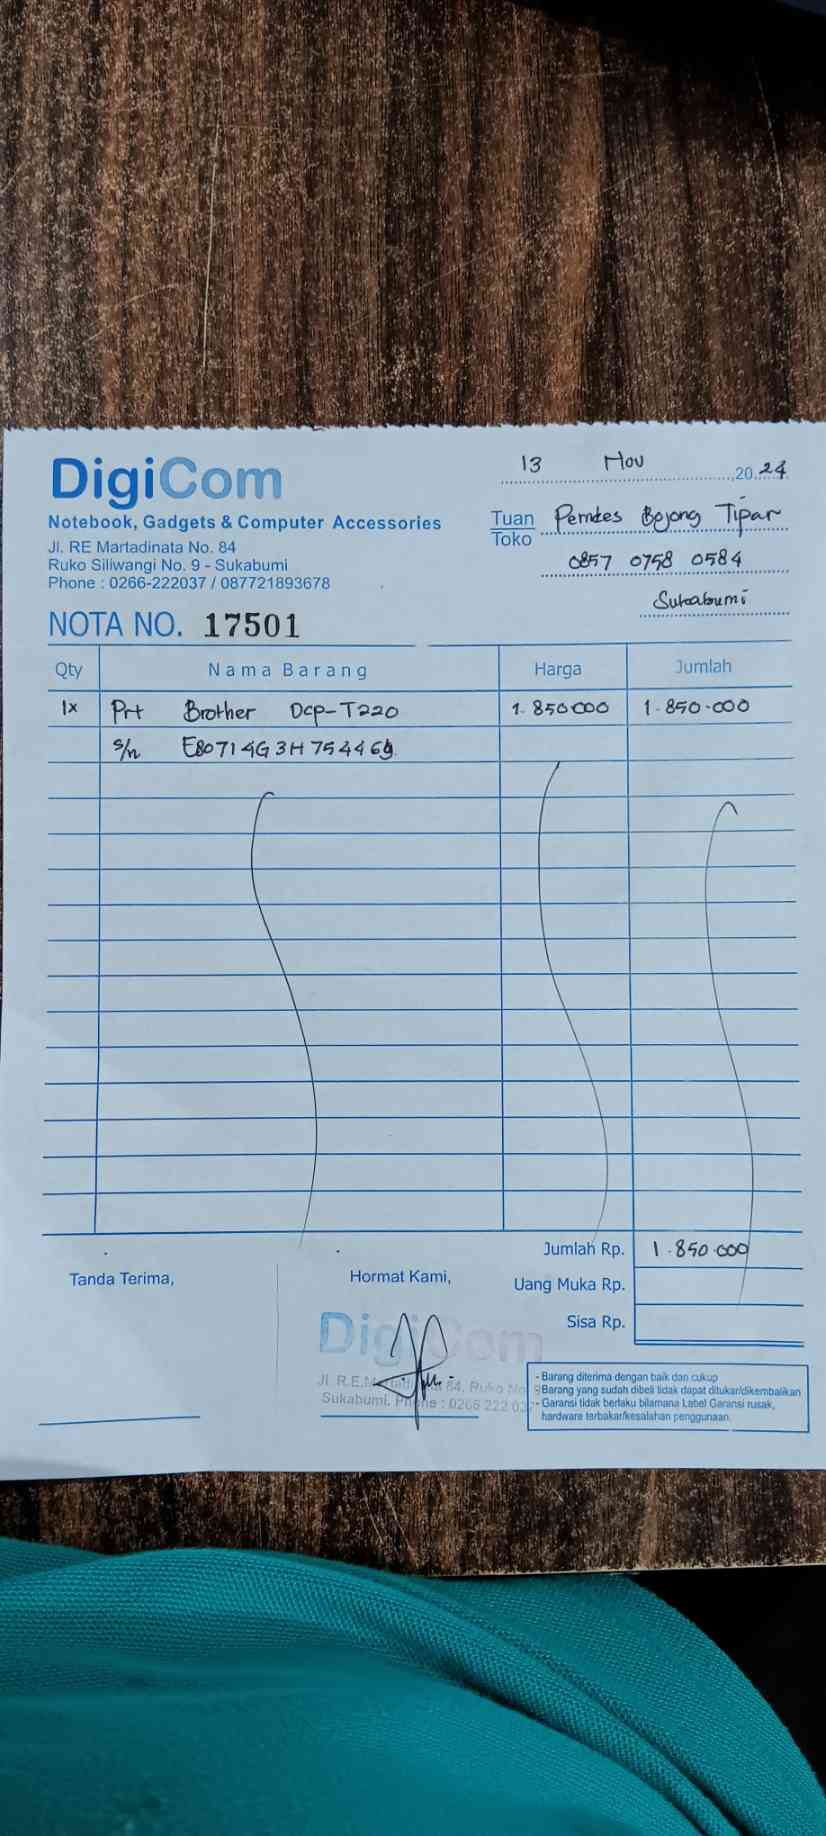 DigiCom
Notebook, Gadgets & Computer Accessories
Jl. RE Martadinata No. 84
Ruko Siliwangi No. 9 - Sukabumi
Phone : 0266-222037 / 087721893678
NOTA NO. 17501
13 Nov 2024
Tuan Toko Pemdes Bojong Tipar
0857 0758 0584
Sukabumi
Qty Nama Barang Harga Jumlah
1x Prt Brother Dcp-T220 1.850.000 1.850.000
s/n E80714G3H754469
Jumlah Rp. 1.850.000
Uang Muka Rp.
Sisa Rp.
Tanda Terima,
Hormat Kami,
DigiCom
Jl. R.E. 84, Ruko No. 9
Sukabumi. Phone : 0266 222 037
- Barang diterima dengan baik dan cukup
- Barang yang sudah dibeli tidak dapat ditukar/dikembalikan
- Garansi tidak berlaku bilamana Label Garansi rusak,
hardware terbakar/kesalahan penggunaan.